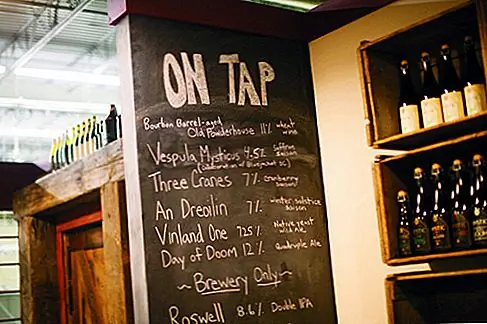 ON TAP
Bourbon Barrel-aged
Old Powderhouse 11% wheat wine
Vespula Mysticus 4.5% Saffron Saison
Three Cranes 7% cranberry saison
An Dreoilin 7% winter solstice saison
Vinland One 7.25% Native yeast wild Ale
Day of Doom 12% Quadruple Ale
~ Brewery Only ~
Roswell 8.6% Double IPA